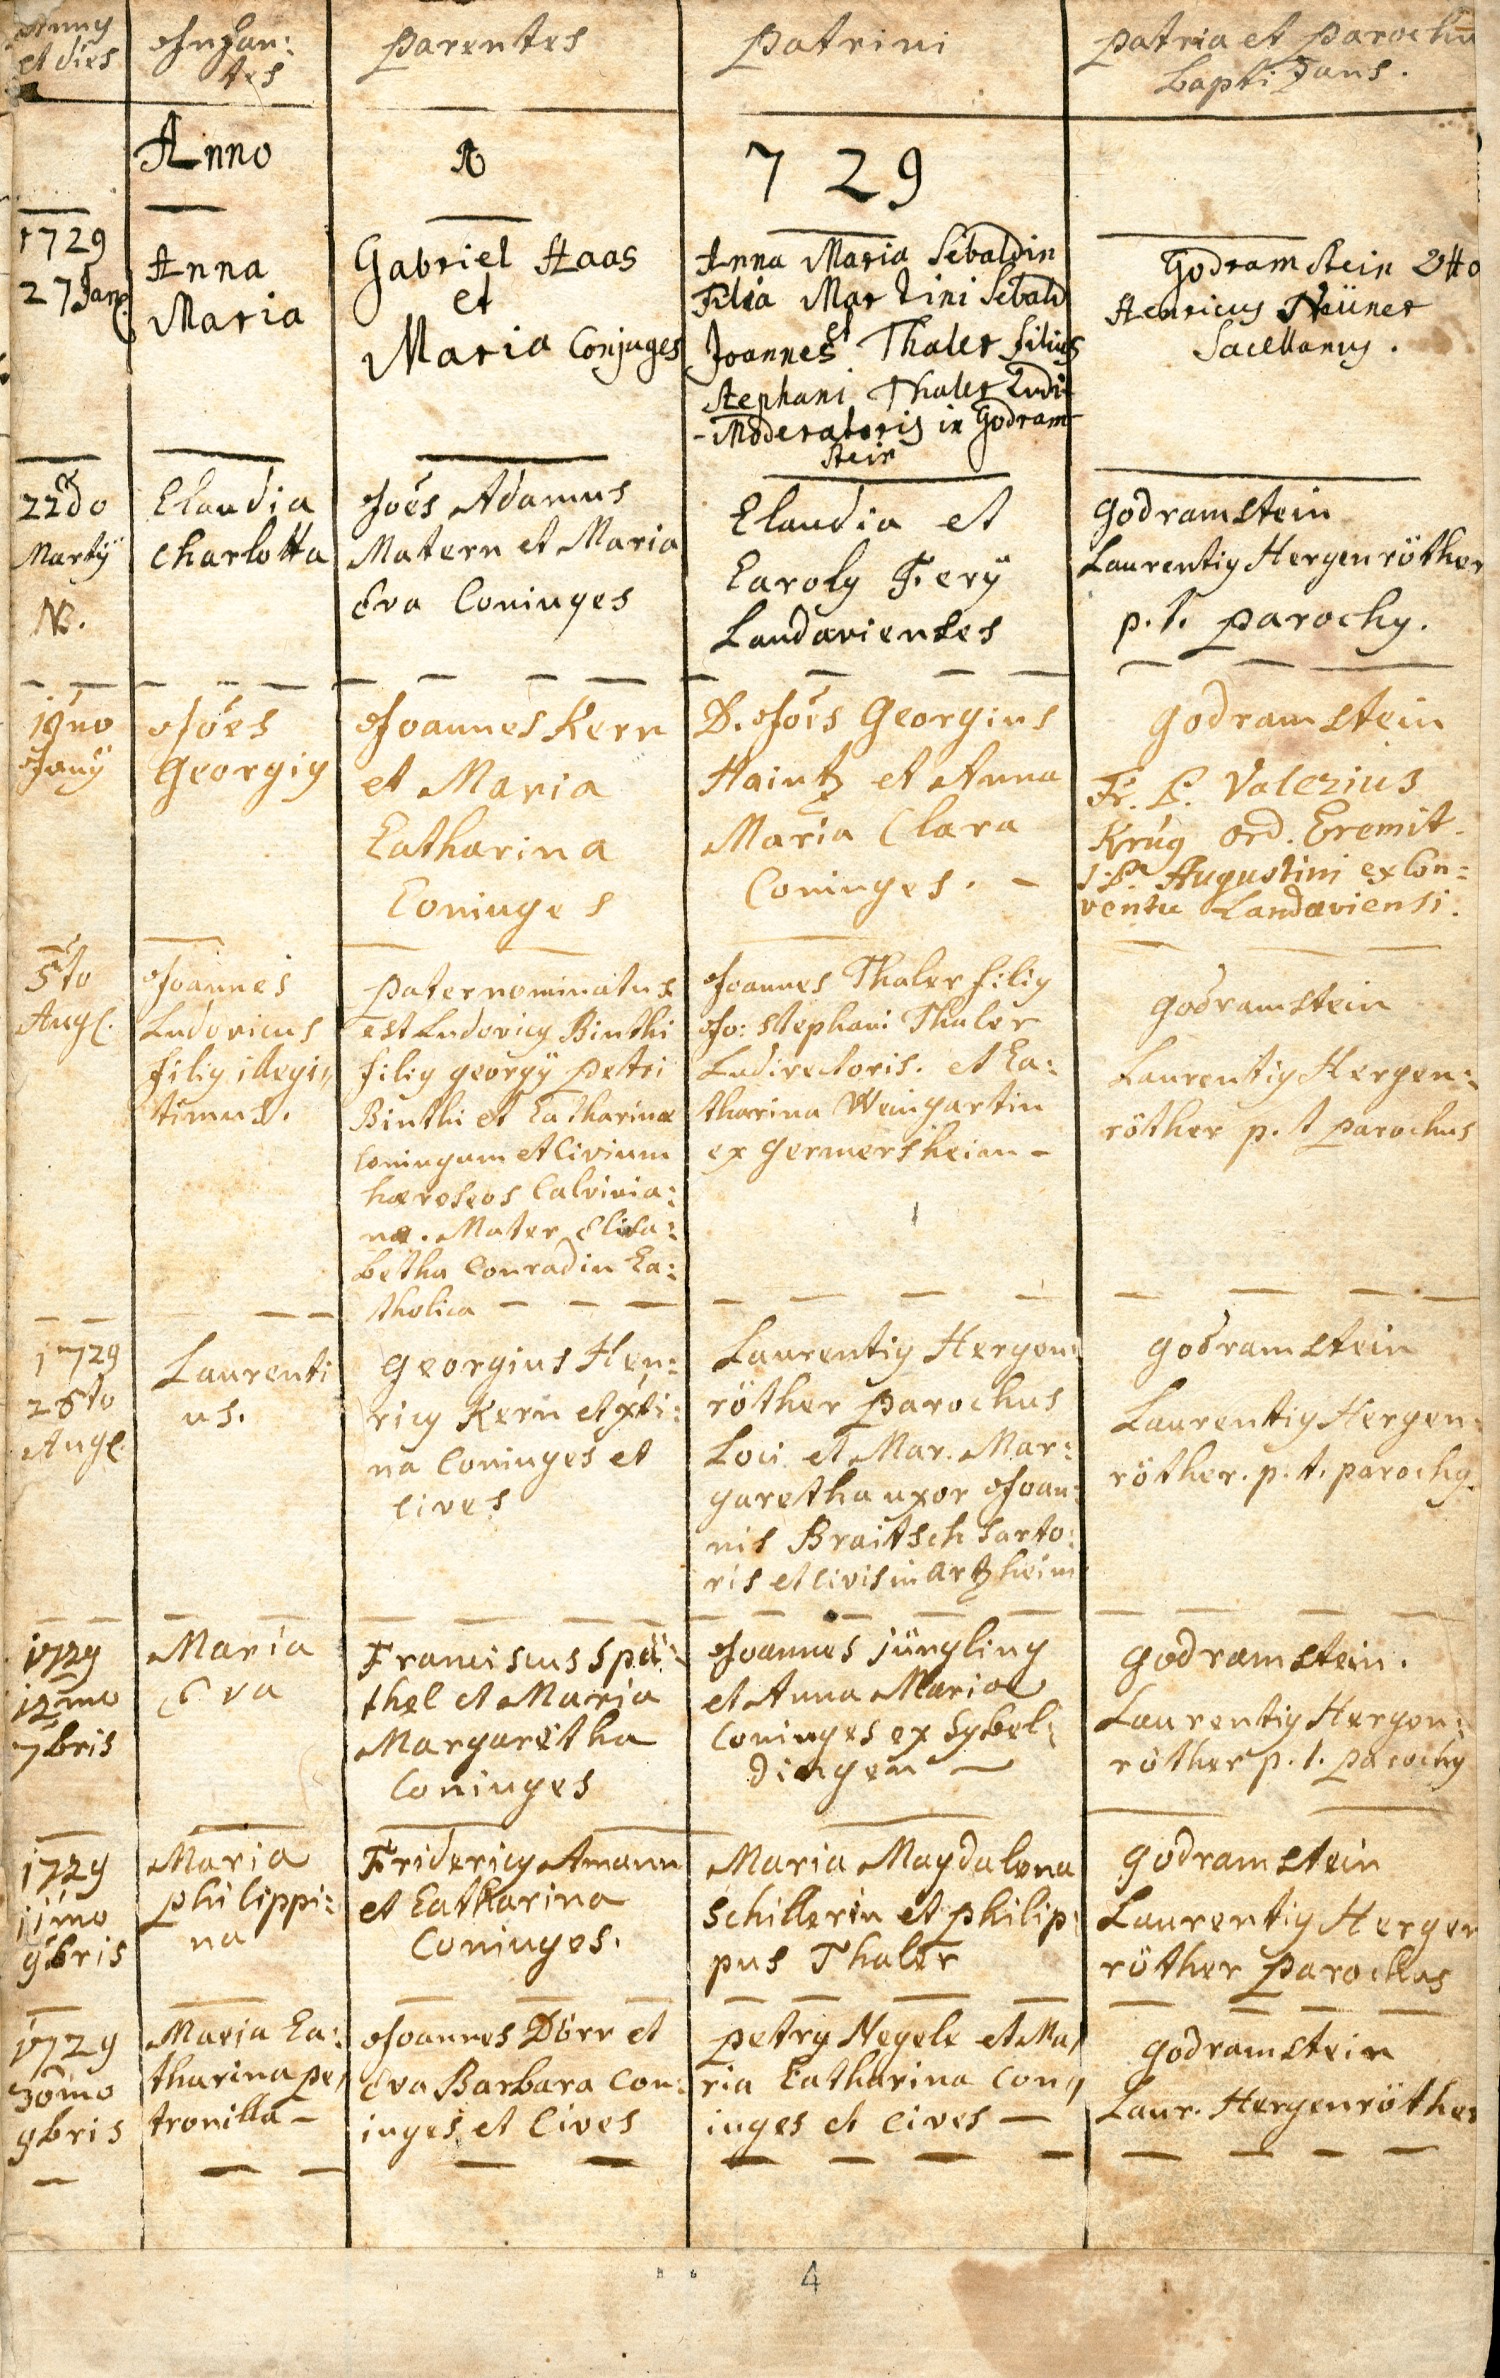 Annus
et dies
Infan:
tes
Parentes
Patrini
Patria et Parochus
baptizans.
Anno
729
1729
27 Jan.
Anna
Maria
Gabriel Haas
et
Maria Conjuges
Anna Maria Sebaldin
Filia Martini Sebald
et
Joannes Thaler filius
Stephani Thaler Ludi-
-Moderatoris in Godram-
stein
Godramstein Otto
Henricus Neüner
Sacellanus.
22do
Martÿ
NB.
Claudia
Charlotta
Joës Adamus
Matern et Maria
Eva Coniuges
Claudia et
Caroly Ferÿ
Landavienses
Godramstein
Laurentiy Hergenröther
p.t. parochy.
19no
Junÿ
Joës
Georgiy
Joannes Kern
et Maria
Catharina
Coniuges
D. Joës Georgius
Haintz et Anna
Maria Clara
Coniuges. -
Godramstein
Fr. P. Valerius
Krug ord. Eremit.
S.P. Augustini ex Con=
ventu Landaviensi.
5to
Aug.
Joannes
Ludovicus
filiy illegi„
timus.
Pater nominatus
est Ludovicy Binthi
filiy georgÿ Petri
Binthi et Catharinæ
Coniugum et Civium
hæreseos Calvinia:
næ. Mater Elisa:
betha Conradin Ca:
tholica - - -
Joannes Thaler filiy
Jo: Stephani Thaler
Ludirectoris. et Ca:
tharina Weingartin
ex Germersheim -
Godramstein
Laurentiy Hergen:
röther p.t parochus
1729
Aug.
Laurenti
us.
Georgius Hen:
ricy Kern et Xti:
na Coniuges et
cives
Laurentiy Hergen:
röther Parochus
Loci et Mar. Mar:
garetha uxor Joan:
nis Braitsch Sarto:
ris et civis in Artzheim
Godramstein
Laurentiy Hergen:
röther. p.t. parochy.
1729
12mo
7bris
Maria
Eva
Franciscus Spä:
thel et Maria
Margaretha
Coniuges
Joannes Jüngling
et Anna Maria
Coniuges ex Sybel:
dingen -
Godramstein.
Laurentiy Hergen:
röther p.t. parochy
1729
11mo
9bris
Maria
Philippi:
na
Fridericy Amann
et Catharina
Coniuges.
Maria Magdalena
Schillerin et Philip:
pus Thaler
Godramstein
Laurentiy Hergen
röther Parochus
1729
30mo
9bris
Maria Ca:
tharina Pe,
tronilla -
Joannes Dörr et
Eva Barbara Con:
iuges et Cives
Petry Negele et Ma,
ria Catharina Con„
iuges et cives -
Godramstein
Laur. Hergenröther
4